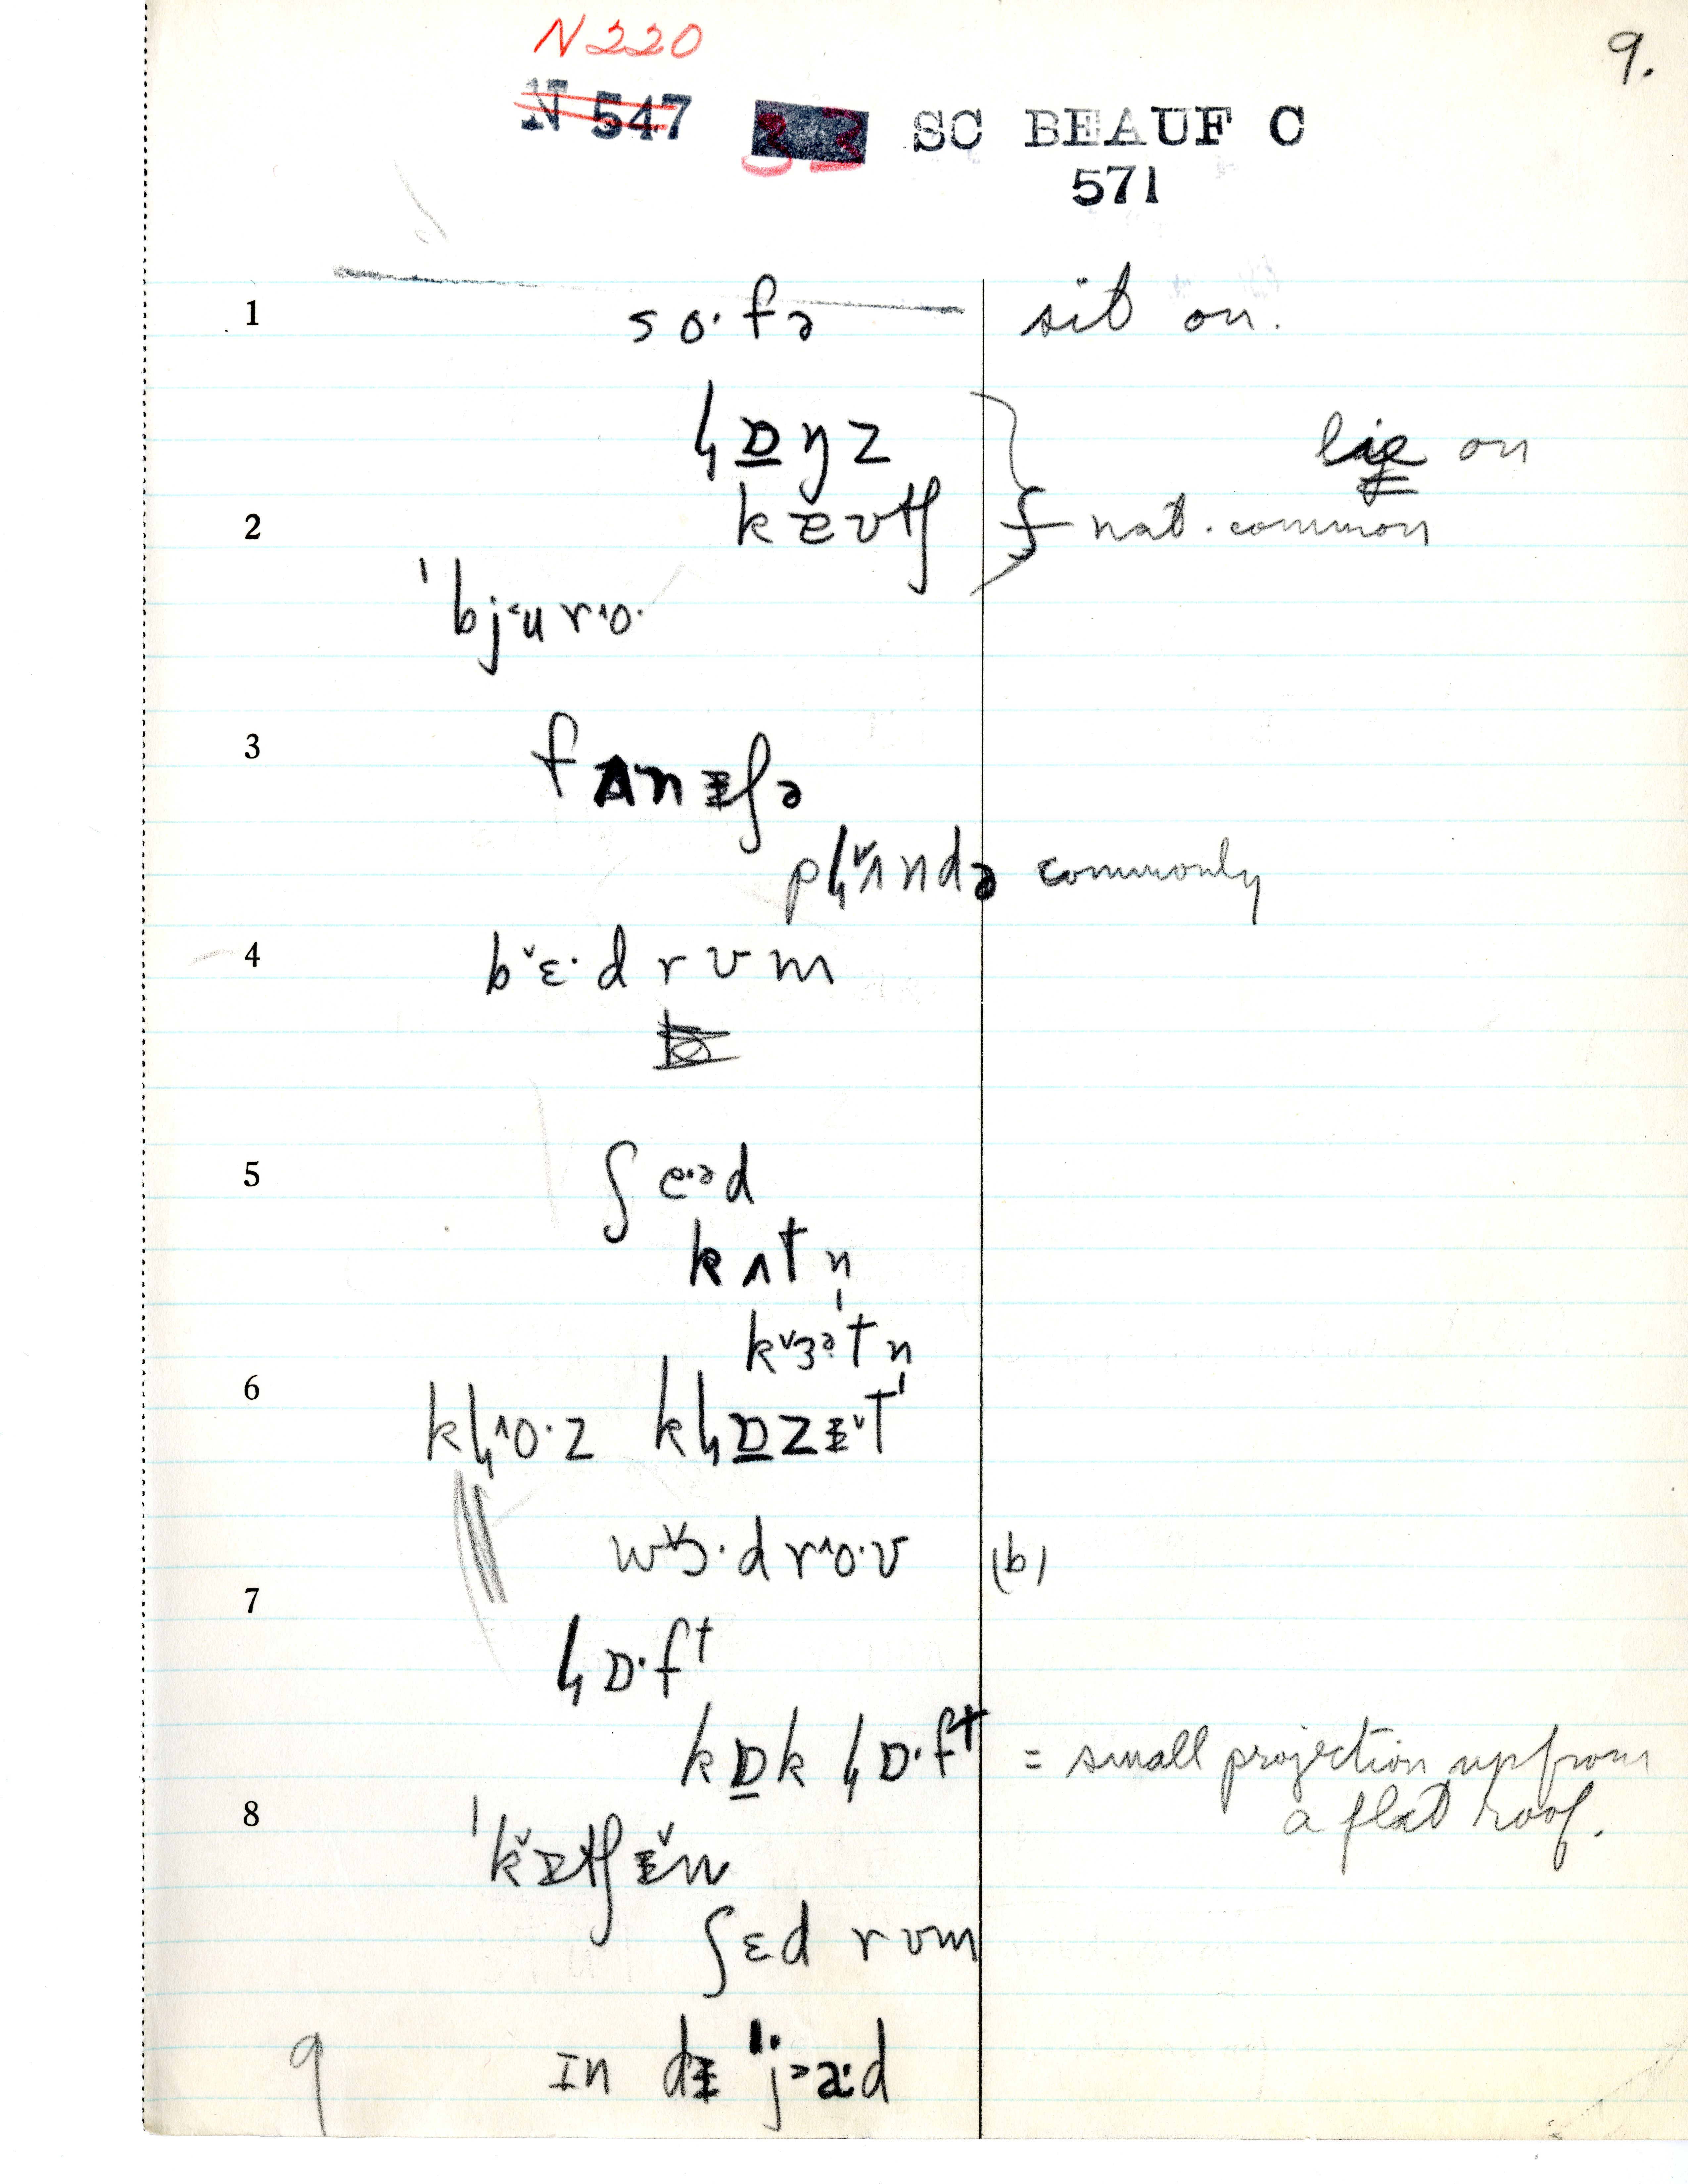 N220
9.
N 547 33 SC BEAUF C
571
1 so·fə sit on.
ɫɒŋz lie on
2 kɐʊtʃ not common
ˈbj˂ur^o·
3 fʌnᵻʃə
pɫˇʌndə commonly
4 bˇɛ·drʊm
5 ʃe·ᵊd
kʌtn̩
kˇɜᵊtn̩
6 kɫ^o·z kɫɒ̱zᵻˇt
wˇɔ·dr^o·ʊ (b)
7
ɫɒ·fᵗ
kɒ̱k ɫɒ·fᵗ = small projection up from
8 a flat roof.
ˈkˇɪtʃᵻˇn
ʃɛd rʊm
9 ɪn dᵻ ˈj˃a·d